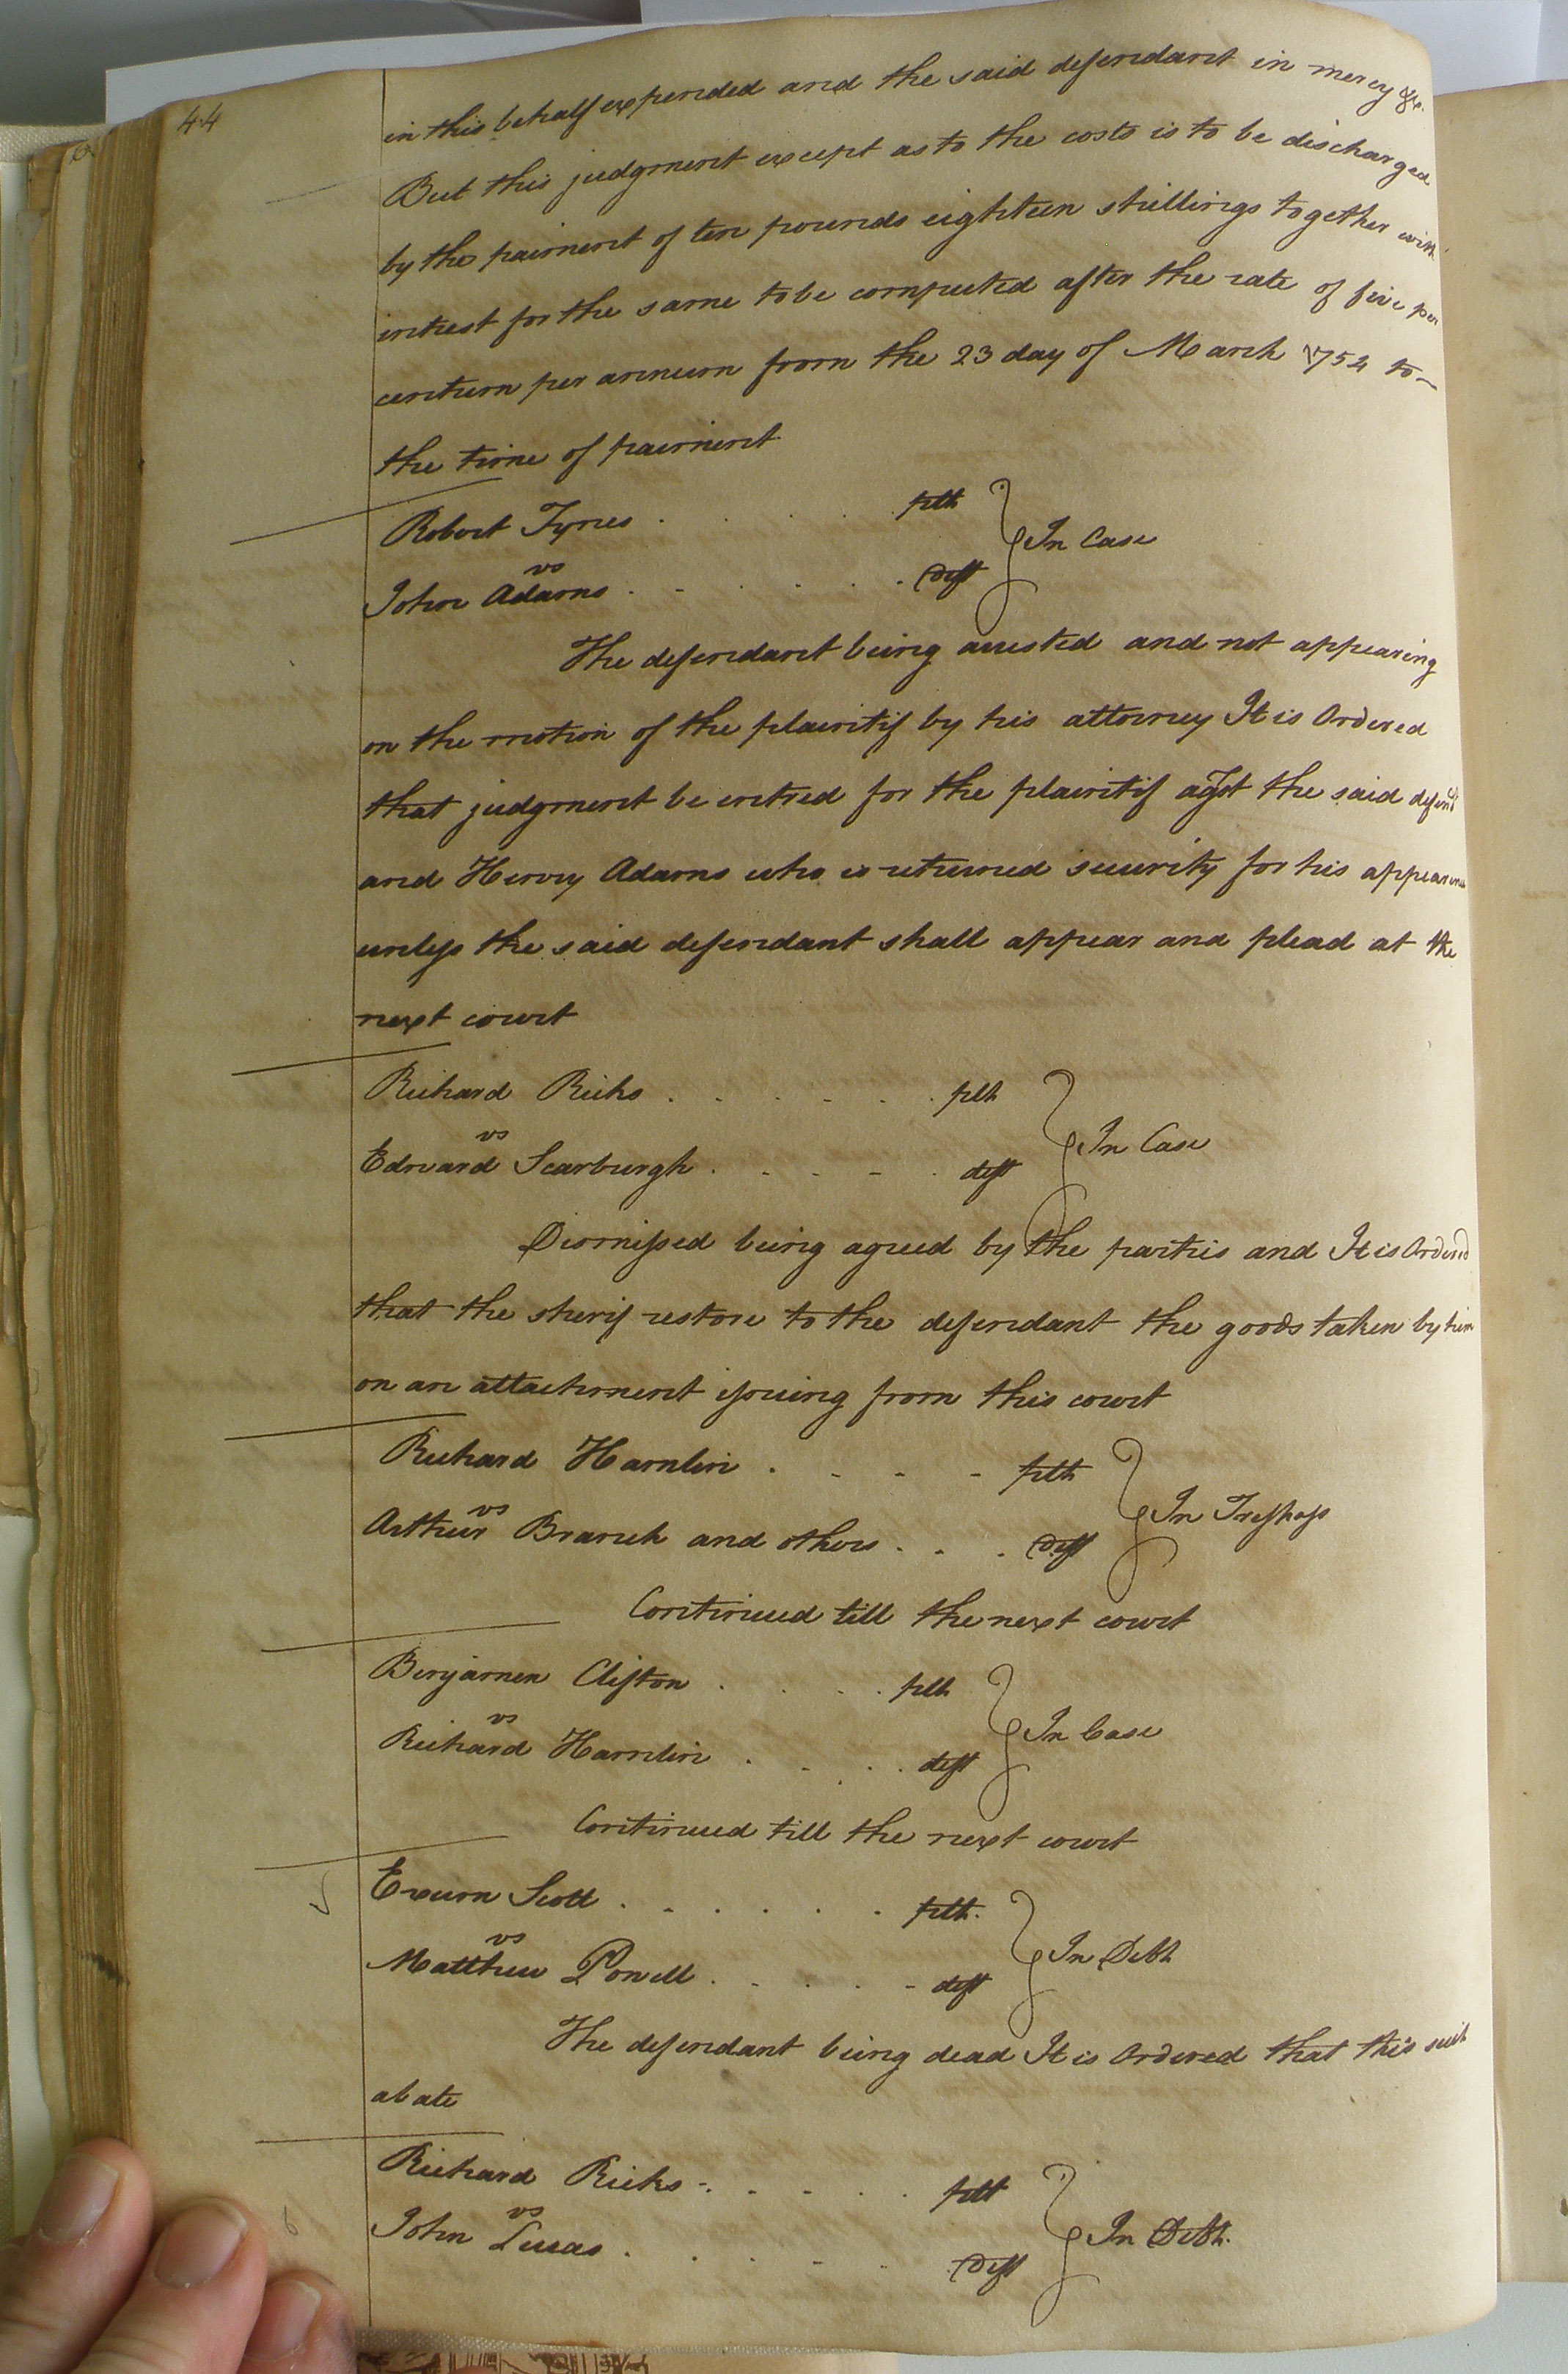 44
in this behalf expended and the said defendant in mercy &c.
But this judgment except as to the costs is to be discharged
by the paiment of ten pounds eighteen shillings together with
intrest for the same to be computed after the rate of five per
centum per annum from the 23 day of March 1754 to
the time of paiment
Robert Tynes . . . . . plt
vs In Case
John Adams . . . . . deft
The defendant being arrested and not appearing
on the motion of the plaintif by his attorney It is Ordered
that judgment be entred for the plaintif agst the said defend
and Henry Adams who is returned security for his appearance
unless the said defendant shall appear and plead at the
next court
Richard Ricks . . . . . plt
vs In Case
Edward Scarburgh . . . . . deft
Dismissed being agreed by the parties and It is Ordered
that the sherif restore to the defendant the goods taken by him
on an attachment issuing from this court
Richard Hamlin . . . . plt
vs In Trespass
Arthur Branch and others . . . deft
Continued till the next court
Benjamen Clifton . . . . plt
vs In Case
Richard Hamlin . . . . deft
Continued till the next court
Exum Scott . . . . . . plt.
vs In Debt
Matthew Powell . . . . . deft
The defendant being dead It is Ordered that this suit
abate
Richard Ricks . . . . . plt
vs In Debt.
John Lucas . . . . . deft